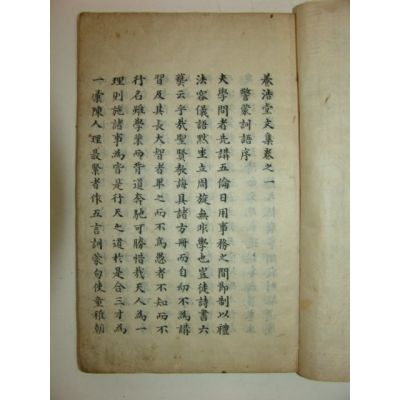 養浩堂文集卷之一
警蒙詞語序
夫學問者先講五倫日用事務之間抑制以禮
法容儀語默坐立周旋無非學也豈徒詩書六
藝云乎哉聖賢教誨具諸方冊而自幼不爲講
習及其長大智者畢之而不篤愚者不知而不
行名雖學業而背道奔馳可勝惜哉天人爲一
理則施諸事爲宮是行天之道於是合三才爲
一彙陳人理最緊者作五言訓蒙句使童稚朝